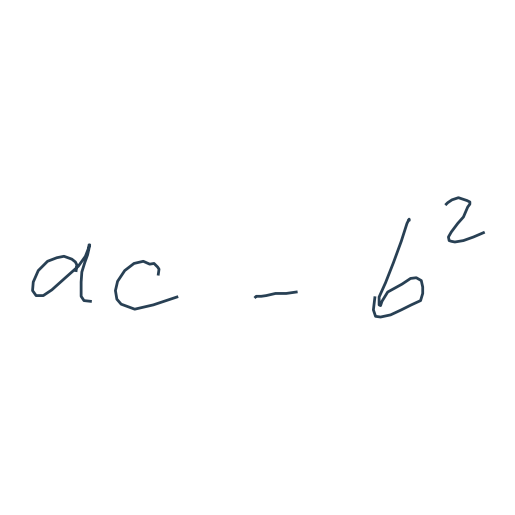 ac - b²